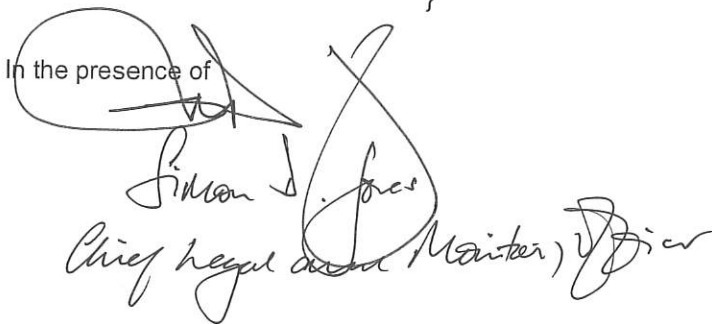 In the presence of
Simon J. Jones
Chief Legal and Monitoring Officer